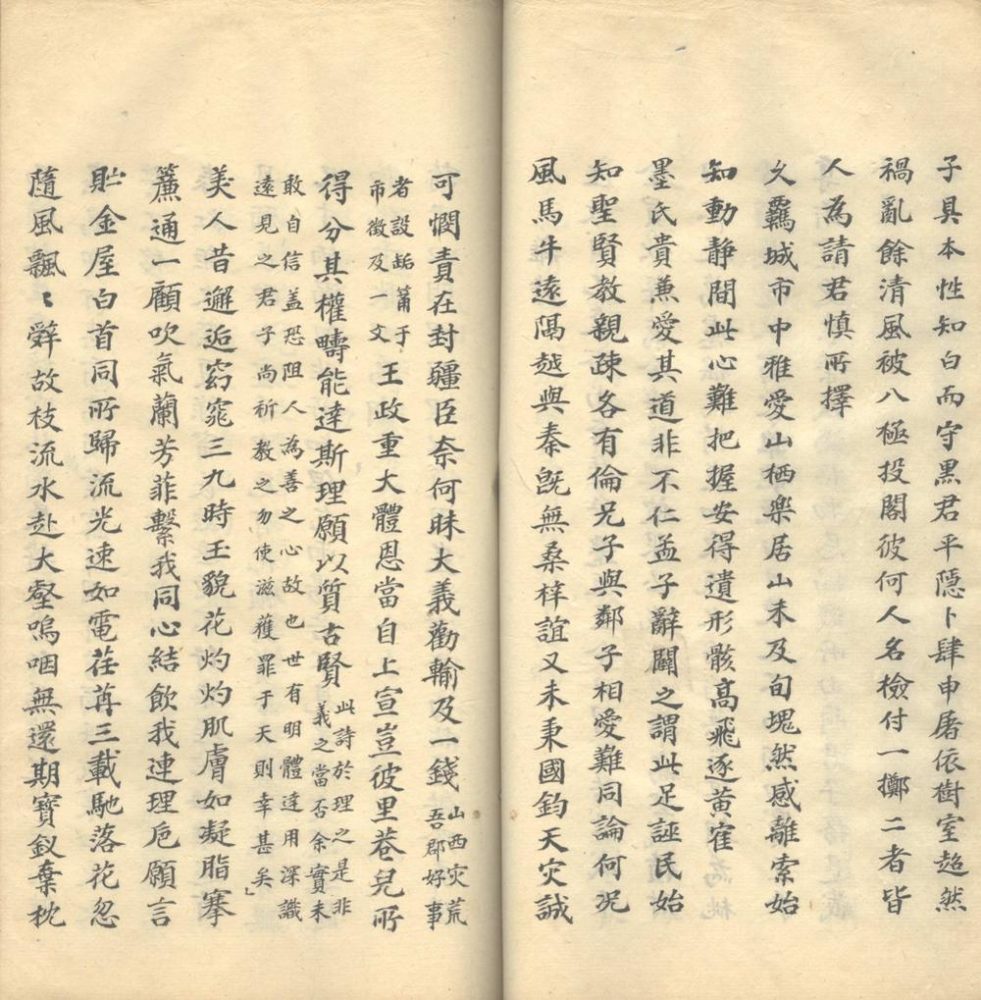 子具本性知白而守黑君平隱卜肆申屠依樹室超然
禍亂餘清風被八極投閣彼何人名檢付一擲二者皆
人為請君慎所擇
久羈城市中雅愛山栖樂居山未及旬塊然感離索始
知動静間此心難把握安得遺形骸高飛逐黃寉
墨氏貴兼愛其道非不仁孟子辭闢之謂此足誣民始
知聖賢教親疎各有倫兄子與鄰子相愛難同論何况
風馬牛遠隔越與秦旣無桑梓誼又未秉國鈞天灾誠
可憫責在封疆臣奈何昧大義勸輸及一錢山西灾荒吾郡好事
者設缿筩于市徵及一文王政重大體恩當自上宣豈彼里巷兒所
得分其權疇能達斯理願以質古賢此詩於理之是非義之當否余實未
敢自信盖恐阻人為善之心故也世有明體達用深識
遠見之君子尚祈教之勿使滋獲罪于天則幸甚矣」
美人昔邂逅窈窕三九時玉貌花灼灼肌膚如凝脂搴
簾通一顧吹氣蘭芳菲繫我同心結飲我連理巵願言
貯金屋白首同所歸流光速如電荏苒三載馳落花忽
隨風飄〻辭故枝流水赴大壑嗚咽無還期寶釵棄枕